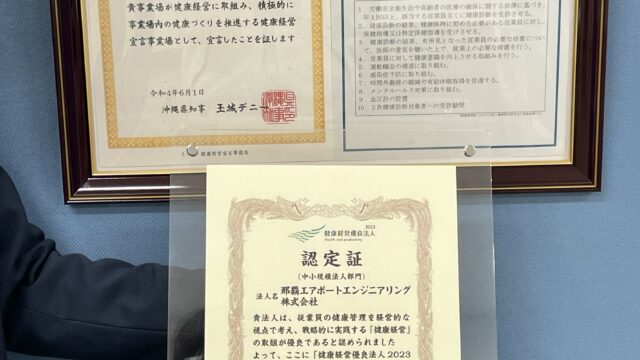 貴事業場が健康経営に取組み、積極的に
事業場内の健康づくりを推進する健康経営
宣言事業場として、宣言したことを証します
令和4年6月1日
沖縄県知事 玉城デニー
うちなー健康経営宣言事務局
4. 従業員に対して健康意識を向上させる取組を行う。
5. 運動機会の増進に取り組む。
6. 感染症予防に取り組む。
7. 時間外勤務の縮減や有給休暇取得を促進する。
8. メンタルヘルス対策に取り組む。
9. 血圧計の設置
10. 2次健康診断対象者への受診勧奨
2023
健康経営優良法人
Health and productivity
認定証
(中小規模法人部門)
法人名 那覇エアポートエンジニアリング
株式会社
貴法人は、従業員の健康管理を経営的な
視点で考え、戦略的に実践する「健康経営」
の取組が優良であると認められました
よって、ここに「健康経営優良法人2023